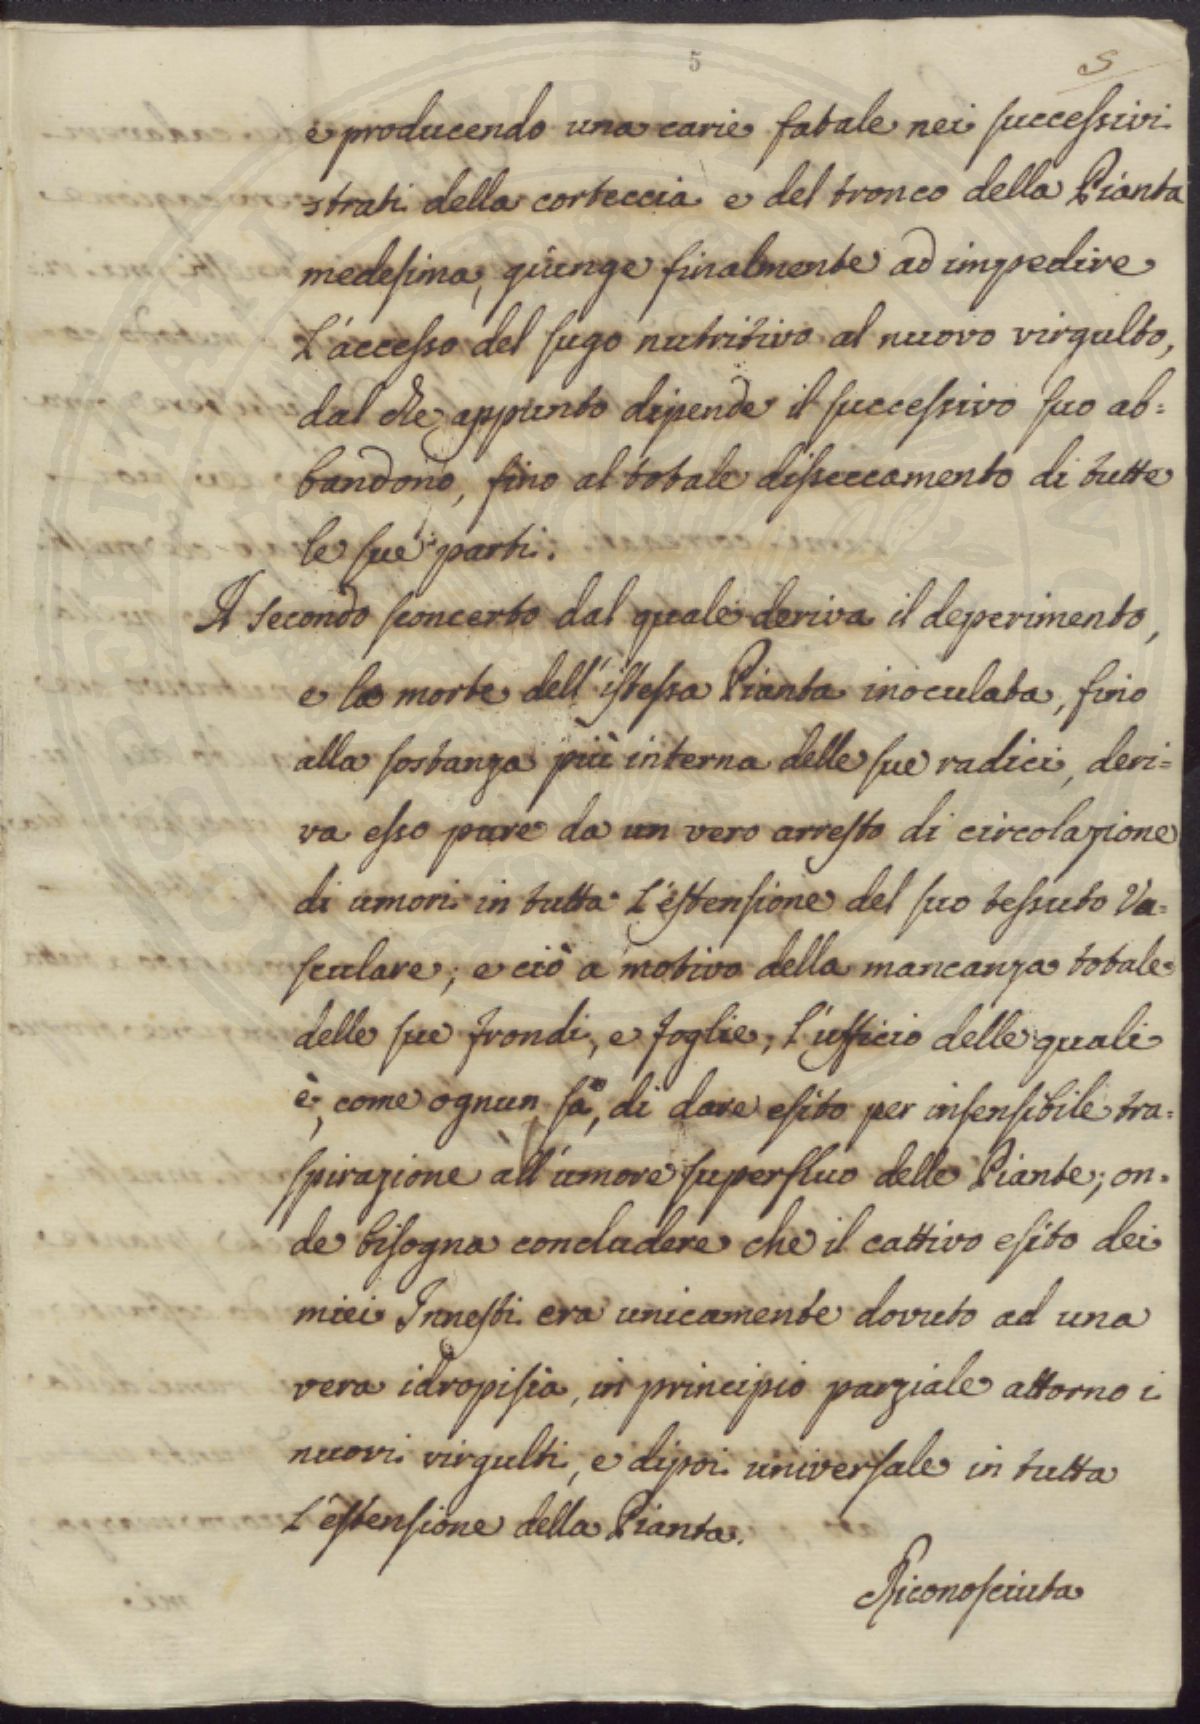 5
5
e producendo una carie fatale nei successivi
strati della corteccia e del tronco della Pianta
medesima, giunge finalmente ad impedire
l'accesso del sugo nutritivo al nuovo virgulto,
dal che appunto dipende il successivo suo ab=
bandono, fino al totale disseccamento di tutte
le sue parti.
Il secondo sconcerto dal quale deriva il deperimento,
e la morte dell'istessa Pianta inoculata, fino
alla sostanza più interna delle sue radici, deri=
va esso pure da un vero arresto di circolazione
di umori in tutta l'estensione del suo tessuto Va=
sculare; e ciò a motivo della mancanza totale
delle sue frondi, e foglie, l'ufficio delle quali
è, come ognun sà, di dare esito per insensibile tra=
spirazione all'umore superfluo delle Piante; on=
de bisogna concludere che il cattivo esito dei
miei Innesti era unicamente dovuto ad una
vera idropisia, in principio parziale attorno i
nuovi virgulti, e dipoi universale in tutta
l'estensione della Pianta.
Riconosciuta